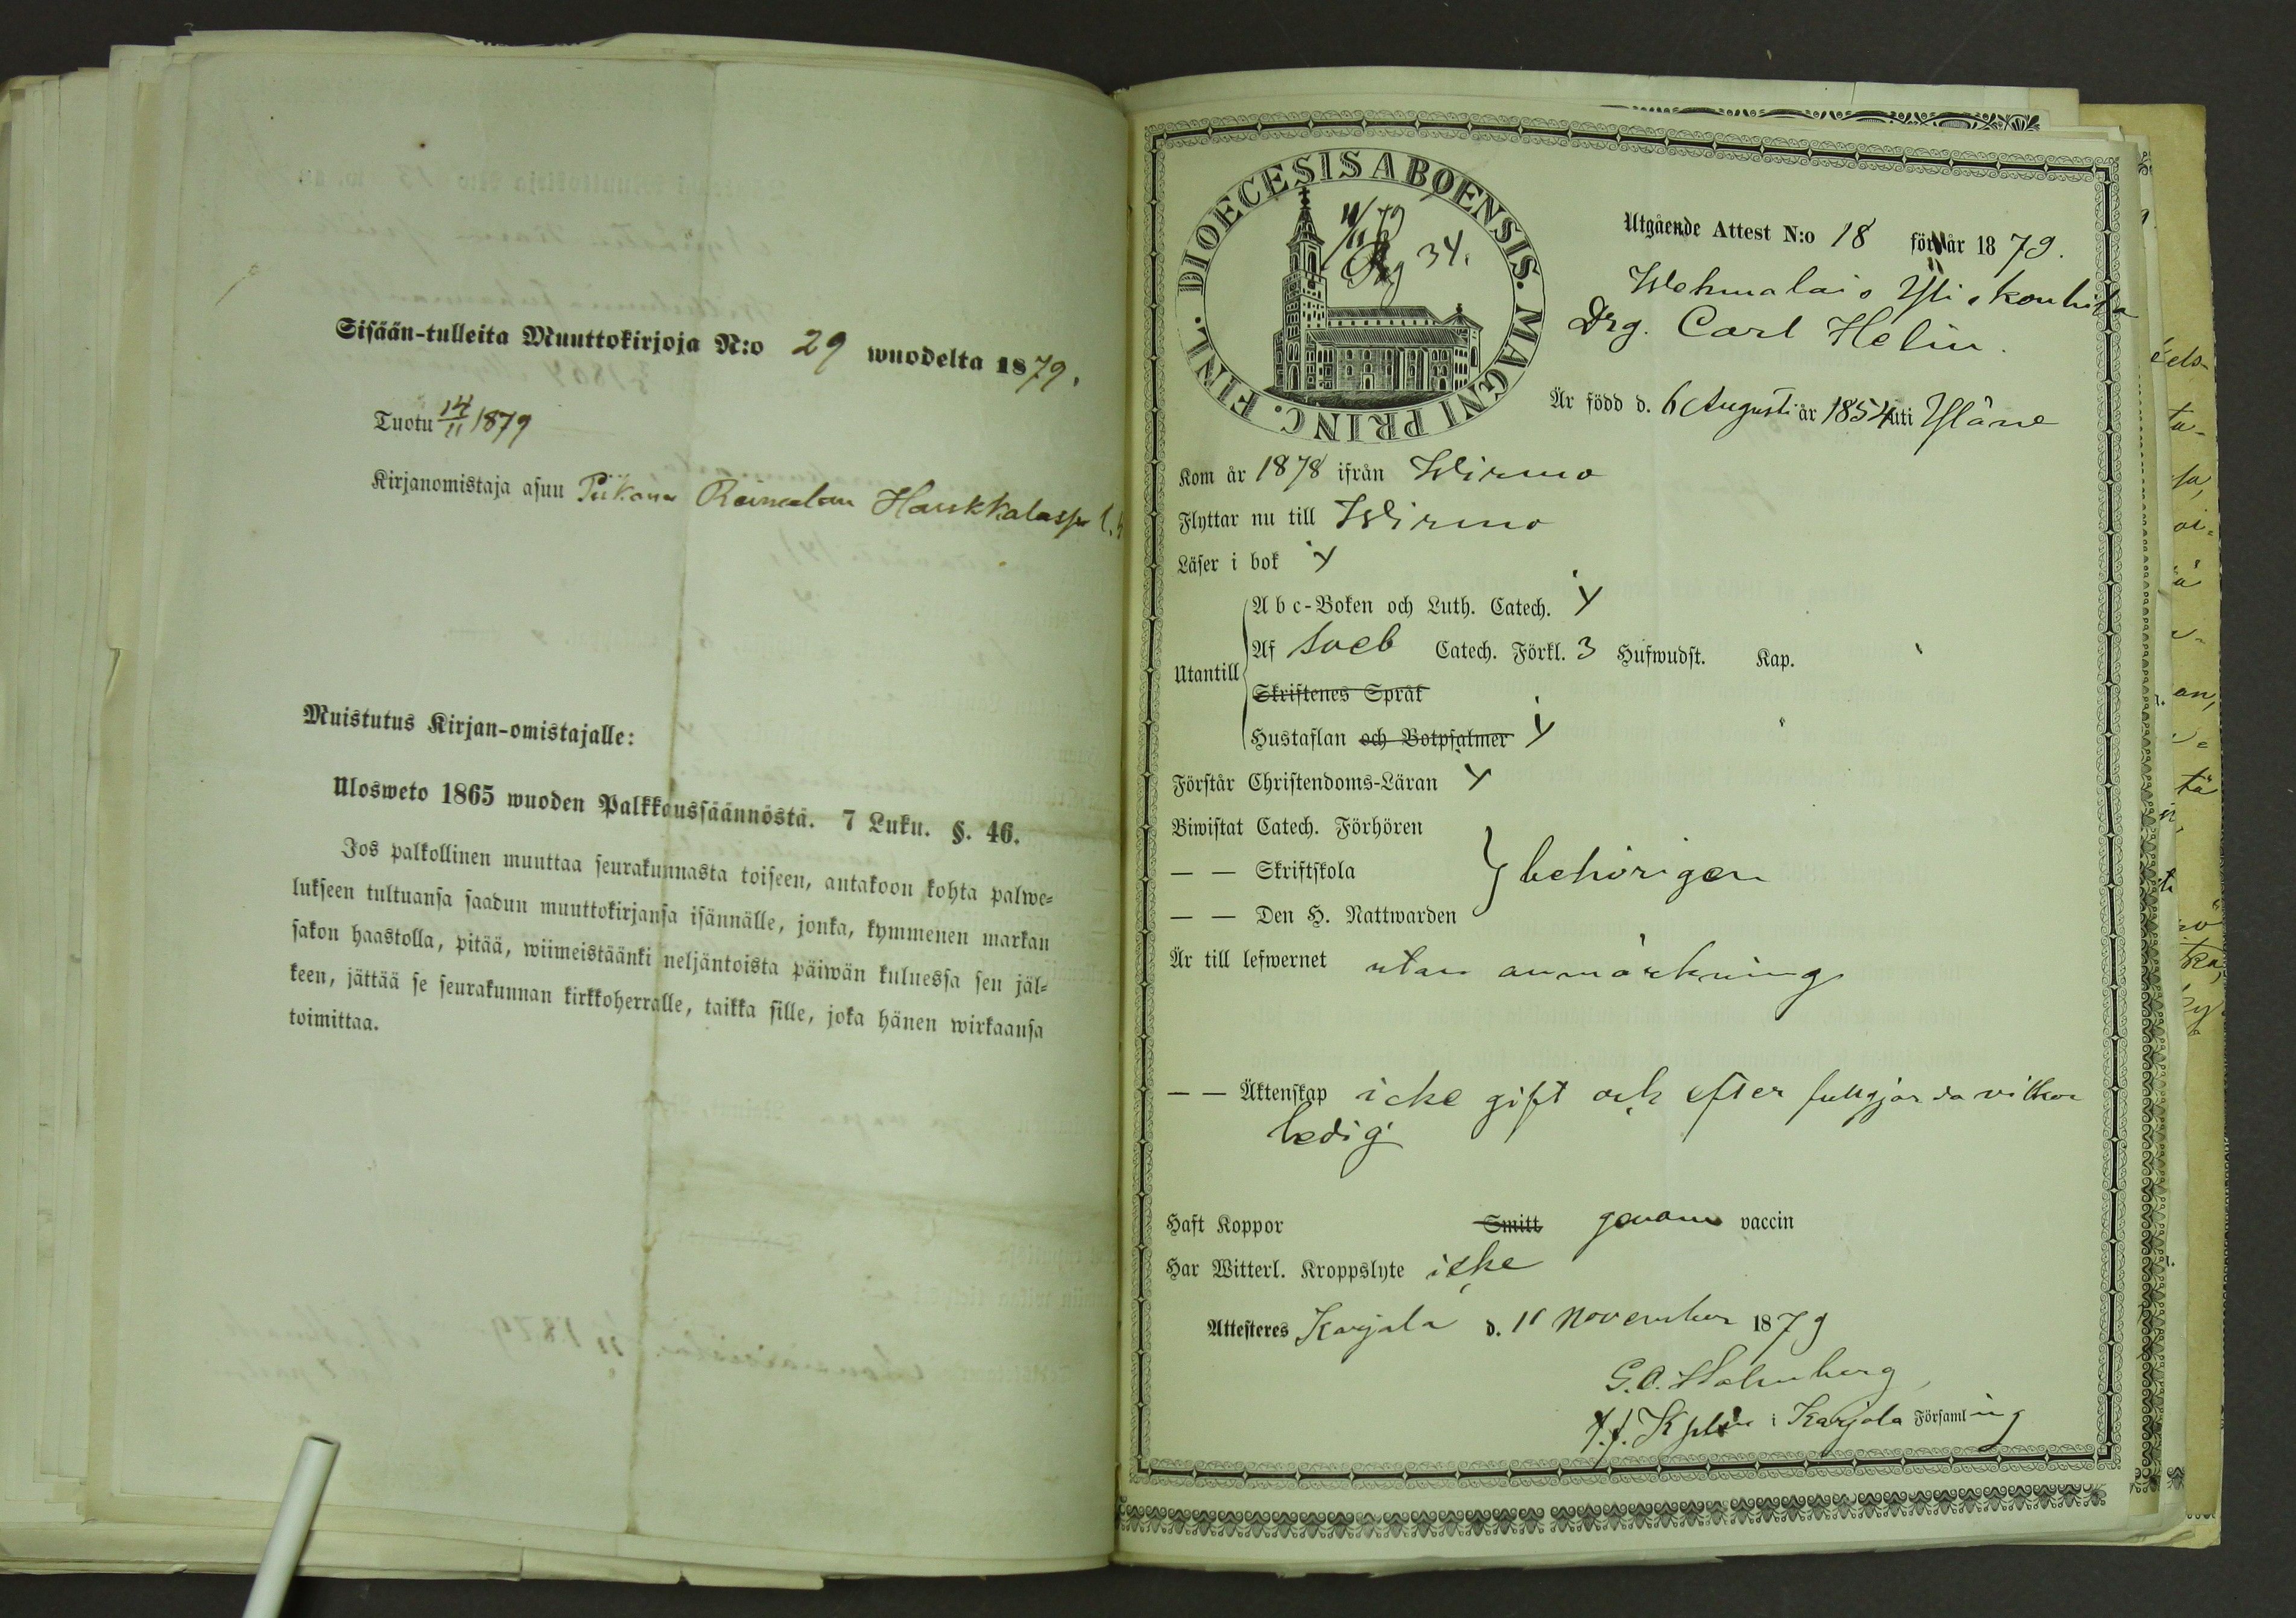 Sisään-tulleita Muuttokirjoja N:o 29 wuodelta 1879.
Tuotu 14/11 1879
Kirjanomistaja asuu Piikana Reimalan Haukkalassa
Muistutus Kirjan-omistajalle:
Ulosweto 1865 wuoden Palkkaussäännöstä. 7 Luku. §. 46.
Jos palkollinen muuttaa seurakunnasta toiseen, antakoon kohta palwe-
lukseen tultuansa saadun muuttokirjansa isännälle, jonka, kymmenen markan
sakon haastolla, pitää, wiimeistäänki neljäntoista päiwän kuluessa sen jäl-
keen, jättää se seurakunnan kirkkoherralle, taikka sille, joka hänen wirkaansa
toimittaa.
DIOECESIS ABOENSIS. MAGNI PRINC. FINL.
11/11 79
34.
Utgående Attest N:o 18 för år 1879.
Wehmalais Yli
Drg. Carl Helin.
Är född d. 6 Augusti år 1854 uti Yläne
Kom år 1878 ifrån Wirmo
Flyttar nu till Wirmo
Läser i bok y
Utantill
Abc-Boken och Luth. Catech. y
Af Soeb Catech. Förkl. 3 Hufwudst. Kap.
Skriftenes Språk
Hustaflan och Botpsalmer y
Förstår Christendoms-Läran y
Biwistat Catech. Förhören
— — Skriftskola } behörigen
— — Den H. Nattwarden
Är till lefwernet utan anmärkning
— — Äktenskap icke gift och efter fullgjorda vilkor
ledig
Haft Koppor Smitt genom vaccin
Har Witterl. Kroppslyte icke
Attesteres Karjala d. 11 November 1879
G. A. Holmberg
i Karjala Församling